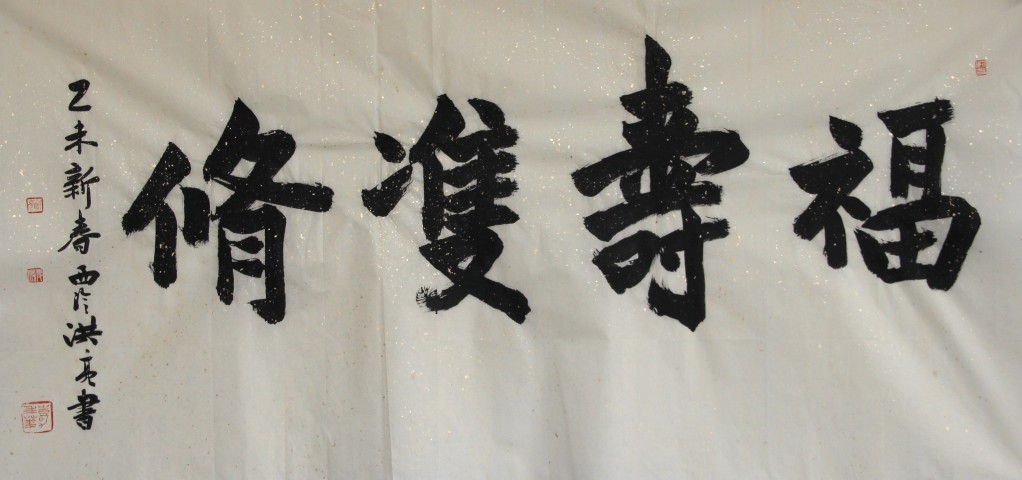 福壽雙脩
乙未新春西泠洪亮書